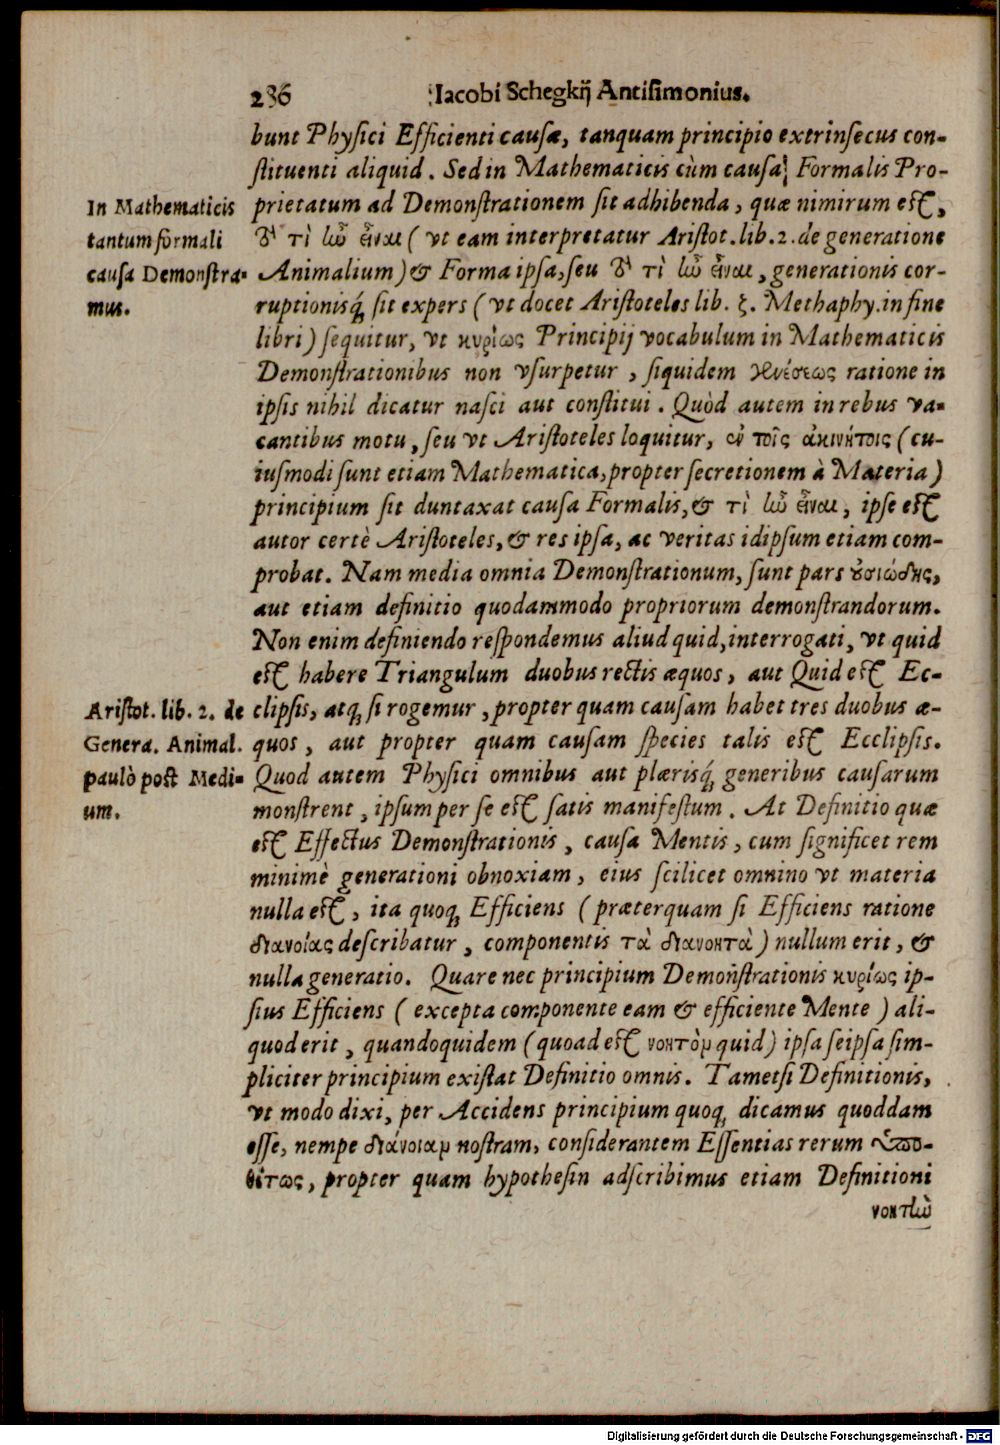 236 Iacobi Schegkij Antisimonius.
bunt Physici Efficienti causæ, tanquam principio extrinsecus con-
stituenti aliquid. Sed in Mathematicis cùm causa Formalis Pro-
prietatum ad Demonstrationem sit adhibenda, quæ nimirum est,
τὸ τὶ ἰῶ εἶναι (vt eam interpretatur Aristot. lib. 2. de generatione
Animalium) & Forma ipsa, seu τὸ τὶ ἰῶ εἶναι, generationis cor-
ruptionisq́; sit expers (vt docet Aristoteles lib. ζ. Methaphy. in fine
libri) sequitur, vt κυρίως Principij vocabulum in Mathematicis
Demonstrationibus non vsurpetur, siquidem γενέσεως ratione in
ipsis nihil dicatur nasci aut constitui. Quòd autem in rebus va-
cantibus motu, seu vt Aristoteles loquitur, ἐν τοῖς ἀκινήτοις (cu-
iusmodi sunt etiam Mathematica, propter secretionem à Materia)
principium sit duntaxat causa Formalis, & τὶ ἰῶ εἶναι, ipse est
autor certè Aristoteles, & res ipsa, ac veritas idipsum etiam com-
probat. Nam media omnia Demonstrationum, sunt pars ȣσιώδης,
aut etiam definitio quodammodo propriorum demonstrandorum.
Non enim definiendo respondemus aliud quid, interrogati, vt quid
est habere Triangulum duobus rectis æquos, aut Quid est Ec-
clipsis, atq; si rogemur, propter quam causam habet tres duobus æ-
quos, aut propter quam causam species talis est Ecclipsis.
Quod autem Physici omnibus aut plærisq́; generibus causarum
monstrent, ipsum per se est satis manifestum. At Definitio quæ
est Effectus Demonstrationis, causa Mentis, cum significet rem
minimè generationi obnoxiam, eius scilicet omnino vt materia
nulla est, ita quoq; Efficiens (præterquam si Efficiens ratione
διανοίας describatur, componentis τὰ διανοητὰ) nullum erit, &
nulla generatio. Quare nec principium Demonstrationis κυρίως ip-
sius Efficiens (excepta componente eam & efficiente Mente) ali-
quod erit, quandoquidem (quoad est νοητὸμ quid) ipsa seipsa sim-
pliciter principium existat Definitio omnis. Tametsi Definitionis,
vt modo dixi, per Accidens principium quoq; dicamus quoddam
esse, nempe διάνοιαμ nostram, considerantem Essentias rerum ὑπο-
θέτως, propter quam hypothesin adscribimus etiam Definitioni
νοητἰὼ
In Mathematicis
tantum formali
causa Demonstra-
mus.
Aristot. lib. 2. de
Genera. Animal.
paulò post Medi-
um.
Digitalisierung gefördert durch die Deutsche Forschungsgemeinschaft - DFG